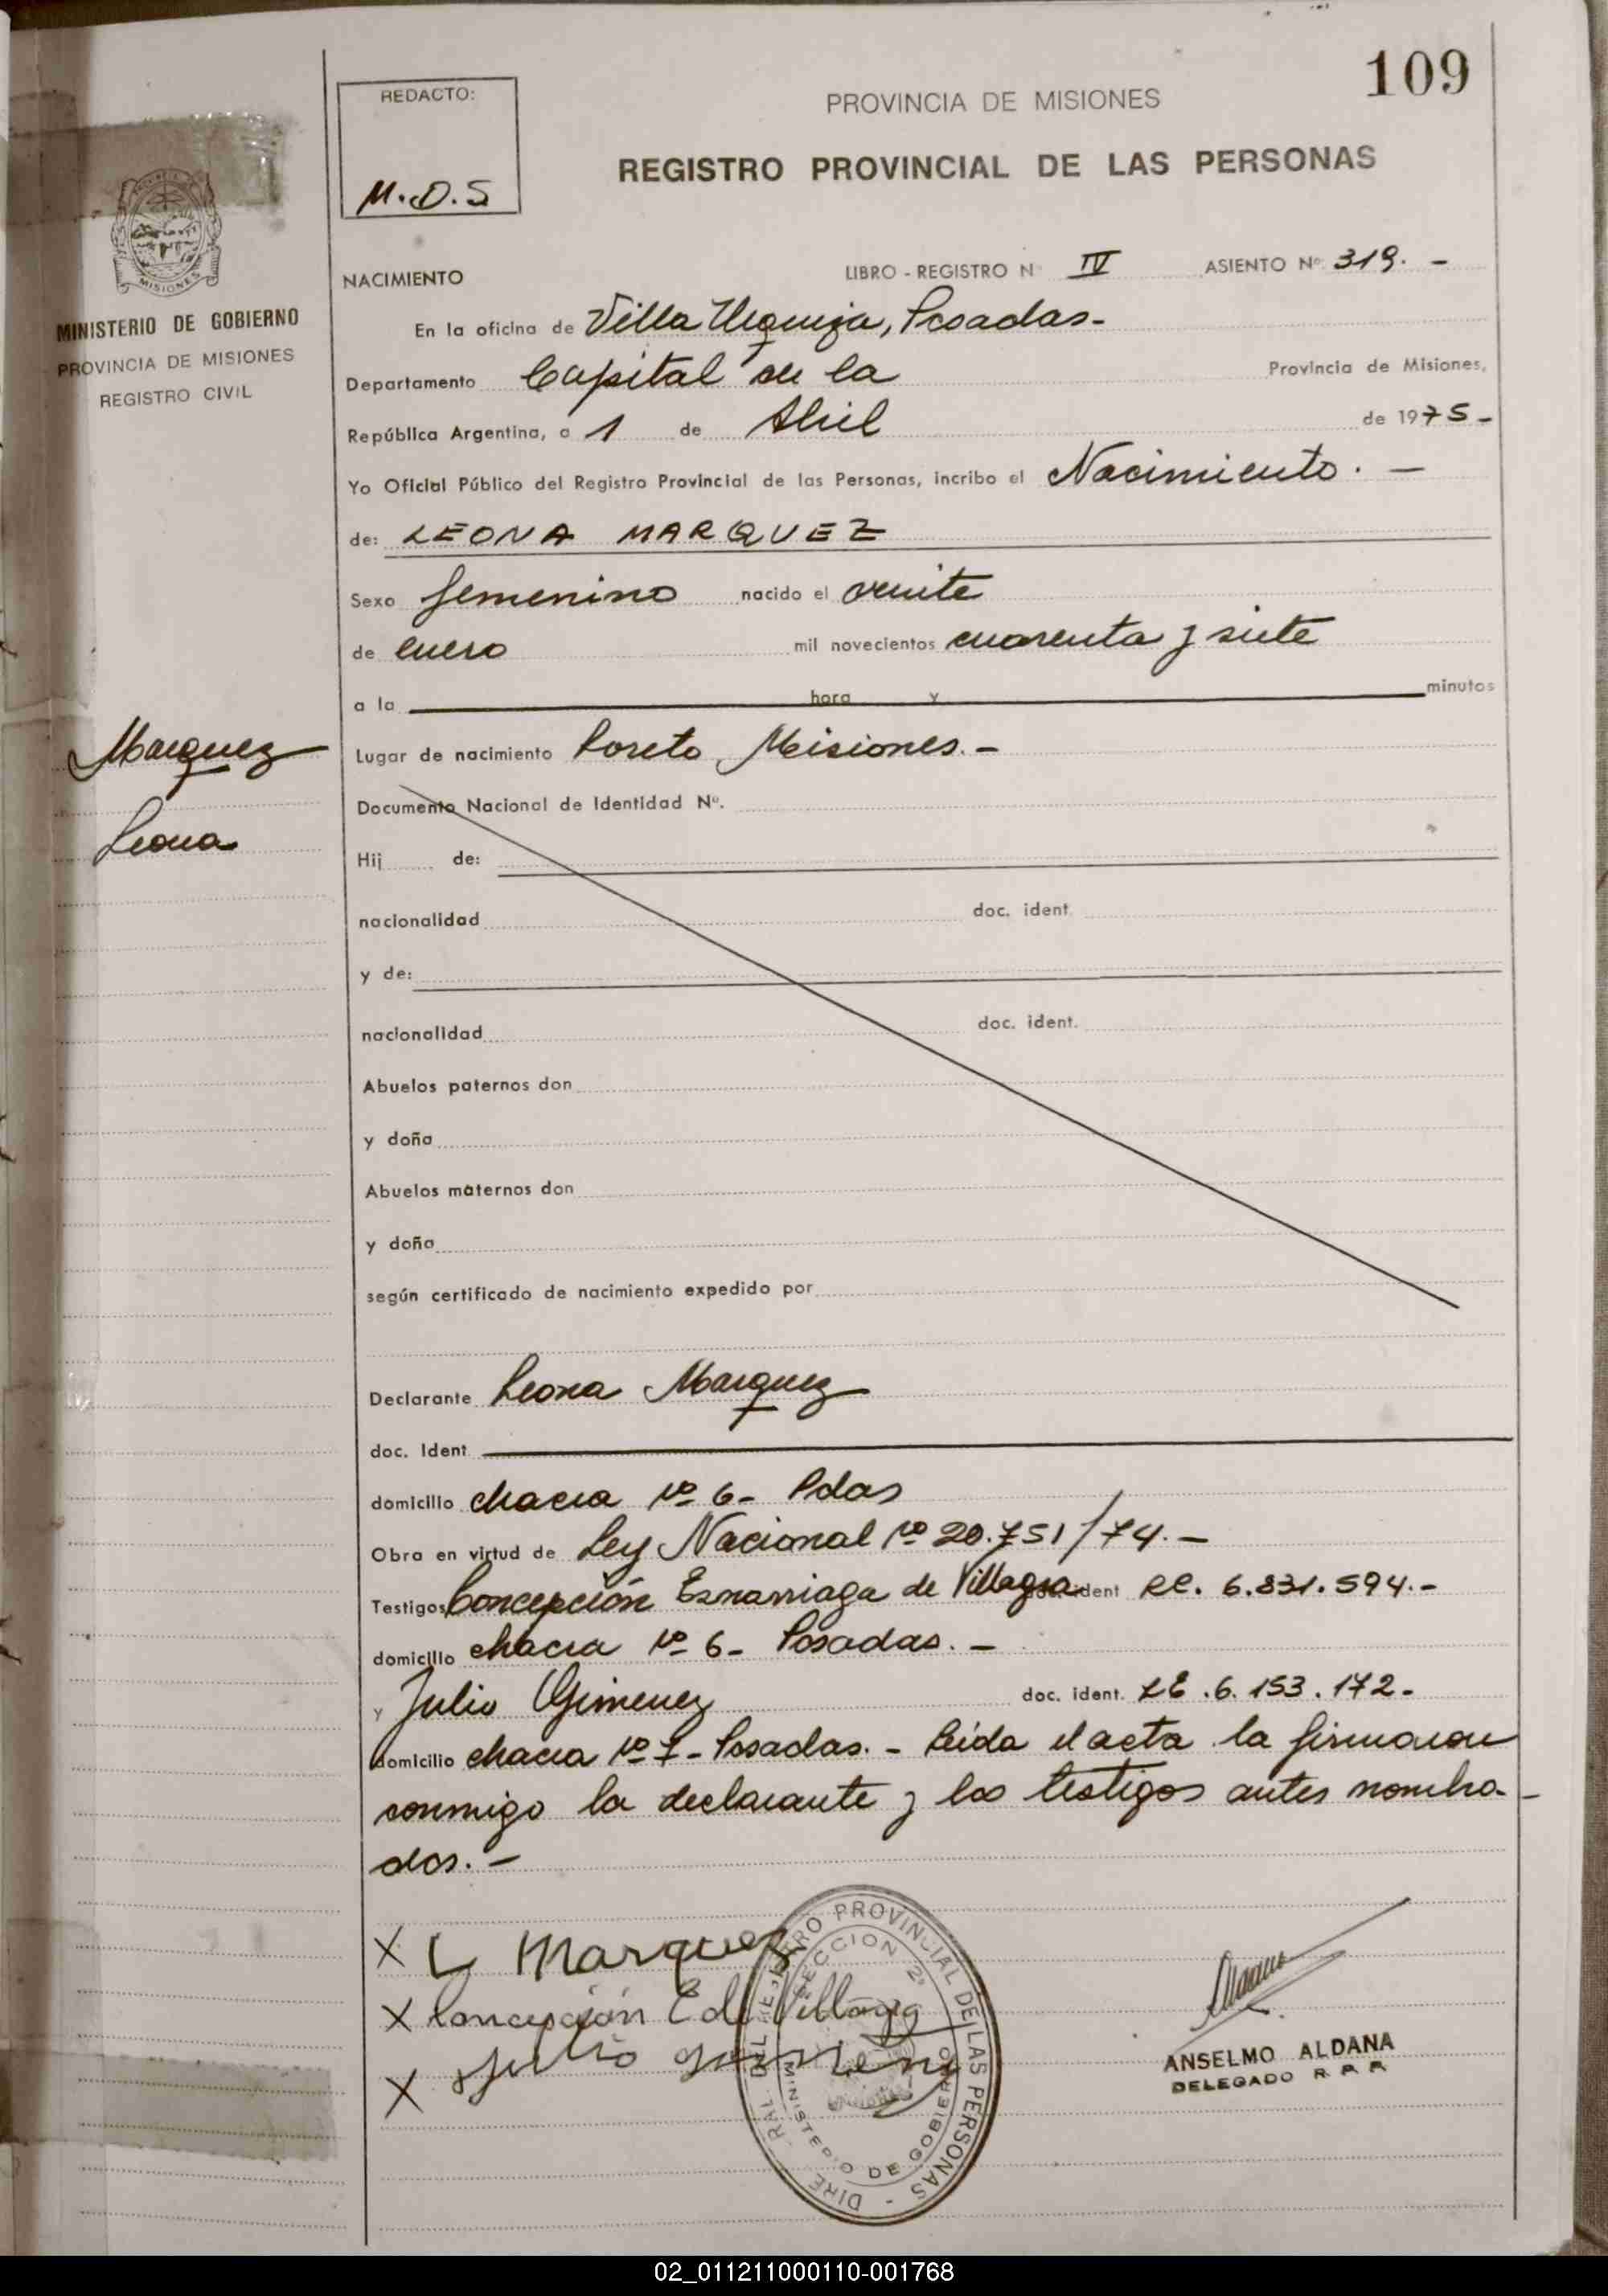 109
REDACTO:
M.O.S
PROVINCIA DE MISIONES
REGISTRO PROVINCIAL DE LAS PERSONAS
MISIONES
MINISTERIO DE GOBIERNO
PROVINCIA DE MISIONES
REGISTRO CIVIL
NACIMIENTO LIBRO - REGISTRO Nº IV ASIENTO Nº 319. -
En la oficina de Villa Urquiza, Posadas-
Departamento Capital de la Provincia de Misiones,
República Argentina, a 1 de Abril de 1975-
Yo Oficial Público del Registro Provincial de las Personas, incribo el Nacimiento. -
de: LEONA MARQUEZ
Sexo femenino nacido el veinte
de enero mil novecientos cuarenta y siete
a la hora y minutos
Marquez
Leona
Lugar de nacimiento Loreto, Misiones. -
Documento Nacional de Identidad Nº.
Hij de:
nacionalidad doc. ident.
y de:
nacionalidad doc. ident.
Abuelos paternos don
y doña
Abuelos maternos don
y doña
según certificado de nacimiento expedido por
Declarante Leona Marquez
doc. Ident.
domicilio chacra Nº 6- Pdas
Obra en virtud de Ley Nacional Nº 20.751/74. -
Testigos Concepción Esnarriaga de Villagra ident RC. 6.831.594. -
domicilio chacra Nº 6- Posadas. -
y Julio Gimenez doc. ident. LE. 6.153.172-
domicilio chacra Nº 7- Posadas. - Leida el acta la firmaron
conmigo la declarante y los testigos antes nombra-
dos. -
X L Marquez
X Concepción E de Villagra
X Julio Gimenez
DIRE RAL DEL REGISTRO PROVINCIAL DE LAS PERSONAS -
SECCION 2ª
MINISTERIO DE GOBIERNO
ANSELMO ALDANA
DELEGADO R. P. P.
02_011211000110-001768